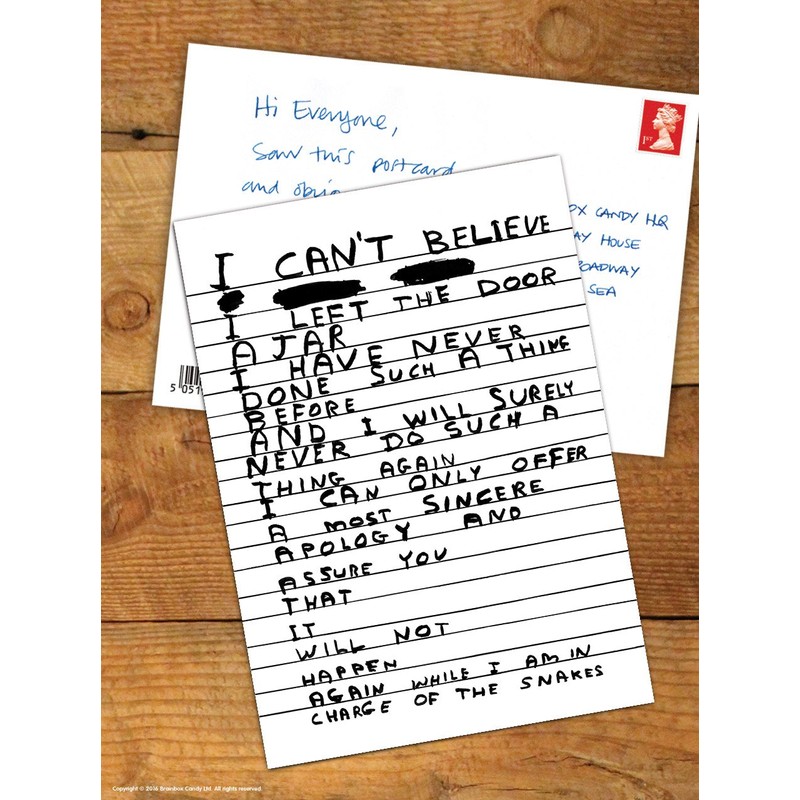 Hi Everyone,
Saw this postcard
and
1ST
CANDY HQ
HOUSE
SEA
I CAN'T BELIEVE
I LEFT THE DOOR
AJAR
I HAVE NEVER
DONE SUCH A THING
BEFORE
AND I WILL SURELY
NEVER DO SUCH A
THING AGAIN
I CAN ONLY OFFER
A MOST SINCERE
APOLOGY AND
ASSURE YOU
THAT
IT
WILL NOT
HAPPEN
AGAIN WHILE I AM IN
CHARGE OF THE SNAKES
Copyright © 2016 Brainbox Candy Ltd. All rights reserved.